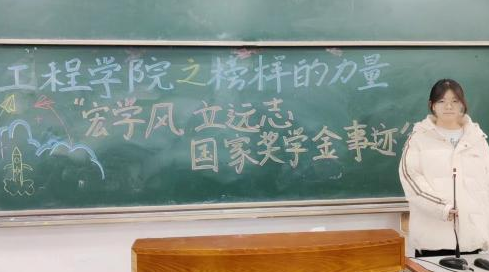 工程学院之榜样的力量
"宏学风 立远志
国家奖学金事迹